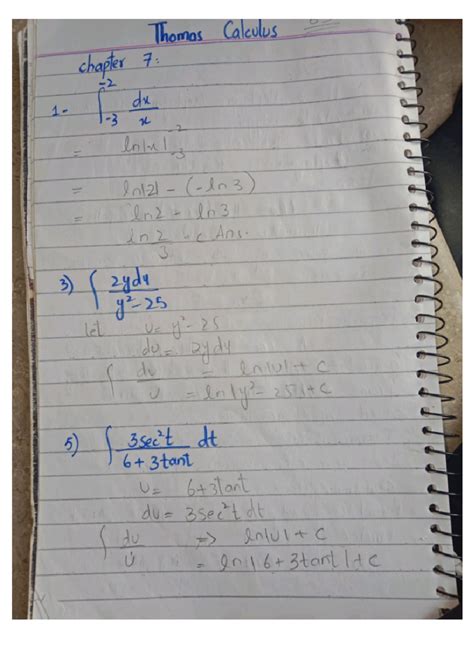 Thomas Calculus
chapter 7:
1- ∫_{-3}^{-2} dx/x
= ln|x| |_{-3}^{-2}
= ln|2| - (-ln3)
= ln2 - ln3
ln 2/3 Ans.
3) ∫ 2ydy/y²-25
let u= y²-25
du= 2ydy
∫ du/u = ln|u|+c
= ln|y²-25|+c
5) ∫ 3sec²t/6+3tant dt
u= 6+3tant
du= 3sec²t dt
∫ du/u => ln|u|+c
= ln|6+3tant|+c